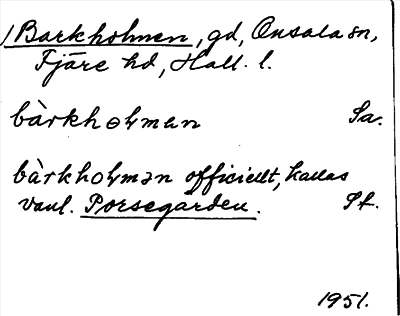 Barkholmen, gd, Onsala sn,
Fjäre hd, Hall. l.
bàrkhoɫmən Sa.
bàrkhoɫmən officiellt, kallas
vanl. Porsegården. St.
1951.